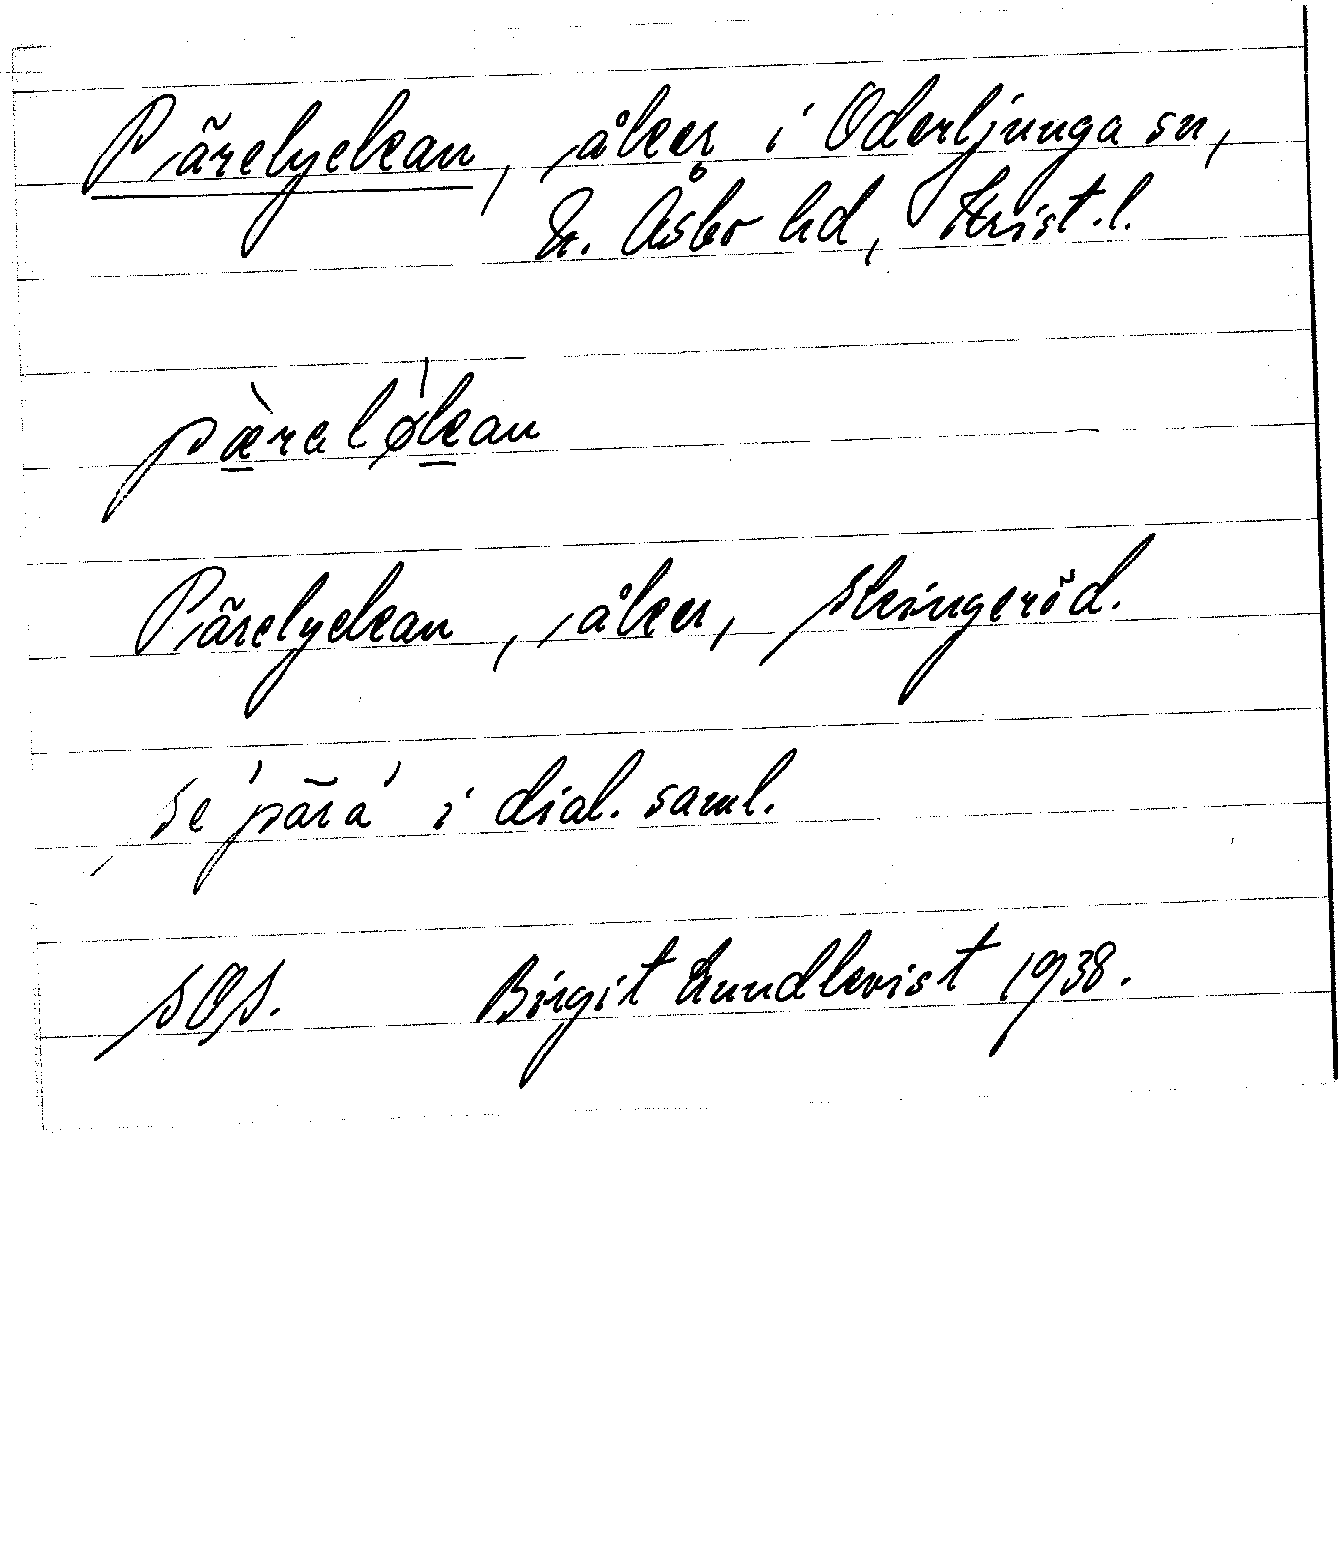 Pärelyckan, åker i Oderljunga sn,
N. Åsbo hd, Krist. l.
pæ̀ralø̍kan
Pärelyckan, åker, Skingeröd.
se 'pära' i dial. saml.
SOS. Birgit Lundkvist 1938.